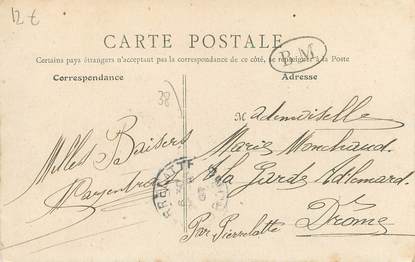 12 €
CARTE POSTALE
B.M
Certains pays étrangers n'acceptant pas la correspondance de ce côté, se renseigner à la Poste
Correspondance
Adresse
38
Mademoiselle
Marie Monchaud
à la Garde Adhemard
Par Pierrelatte Drome
Milles Baisers